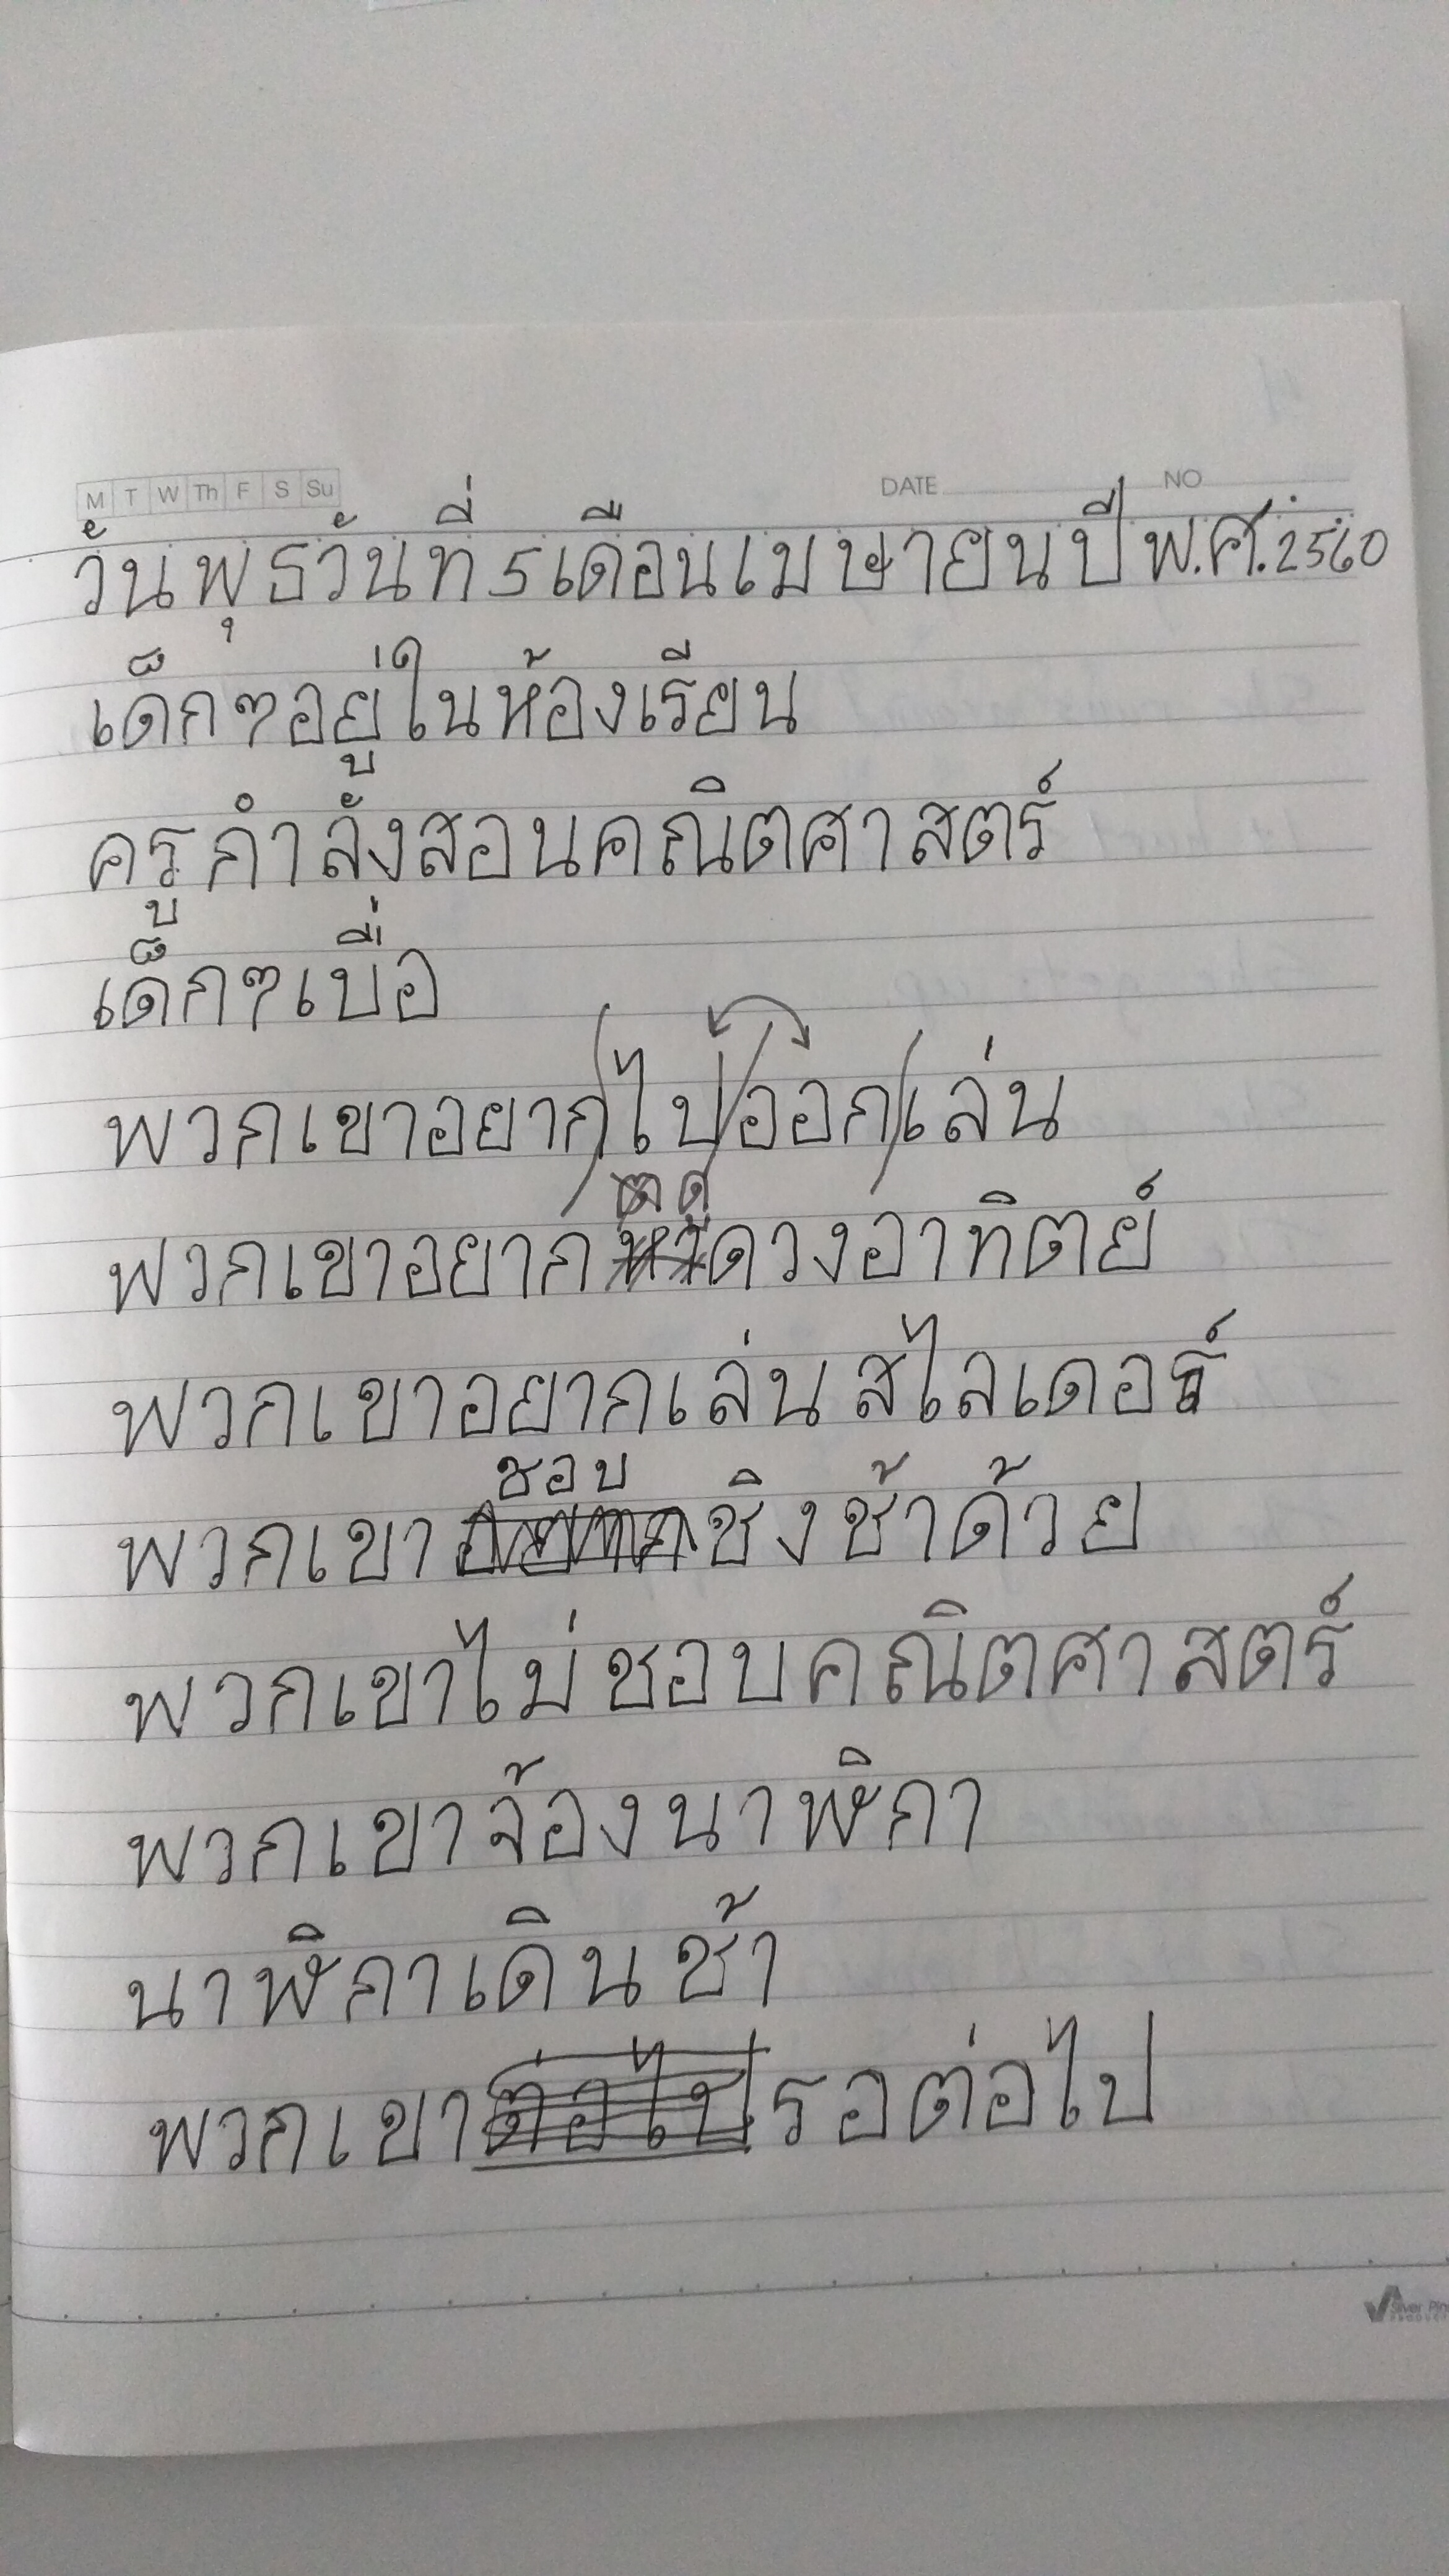 M T W Th F S Su DATE NO
วันพุธวันที่ 5 เดือนเมษายนปี พ.ศ. 2560
เด็กๆอยู่ในห้องเรียน
ครูกำลังสอนคณิตศาสตร์
เด็กๆเบื่อ
พวกเขาอยาก/ไป/ออก/เล่น
ดู
พวกเขาอยากดวงอาทิตย์
พวกเขาอยากเล่นสไลเดอร์
ชอบ
พวกเขาชิงช้าด้วย
พวกเขาไม่ชอบคณิตศาสตร์
พวกเขาจ้องนาฬิกา
นาฬิกาเดินช้า
พวกเขารอต่อไป